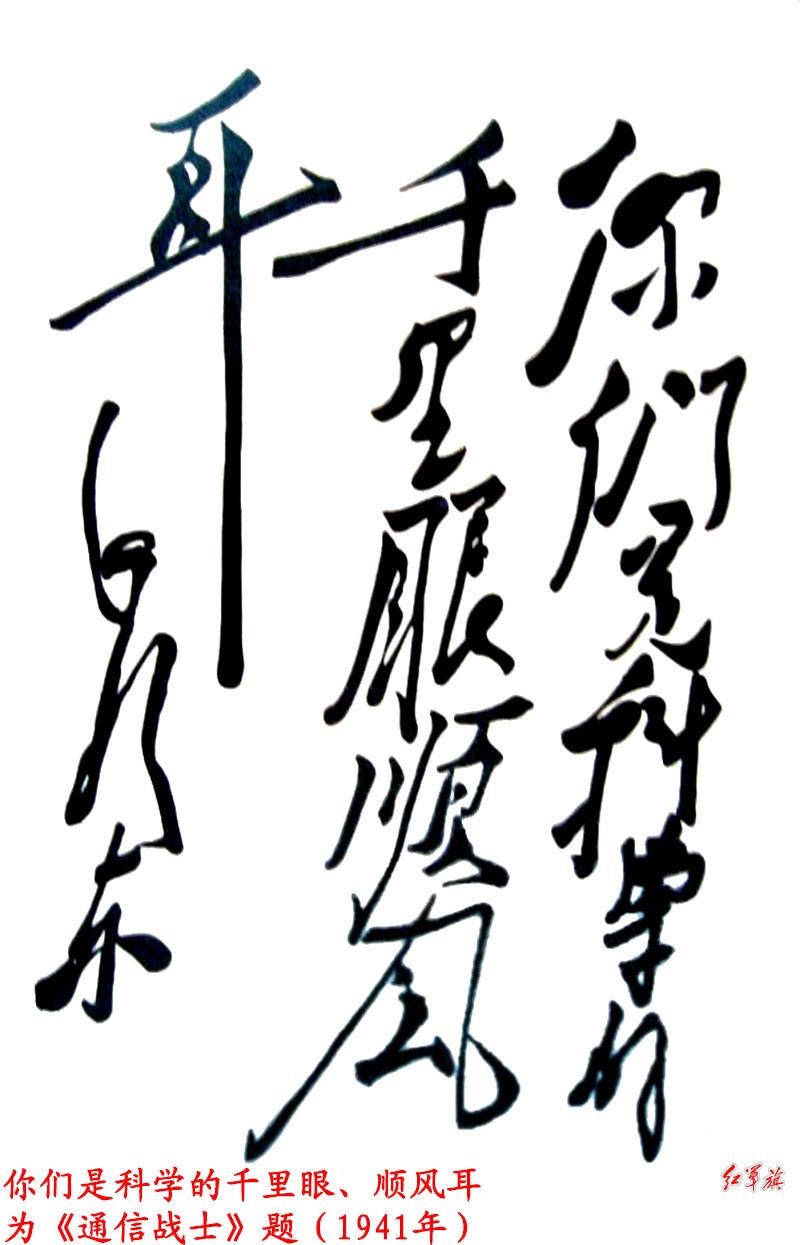 你們是科學的
千里眼順風
耳
毛泽东
你们是科学的千里眼、顺风耳
为《通信战士》题（1941年）
红军旗